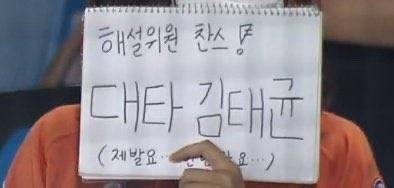 해설위원 찬스!
대타 김태균
(제발요‥ 요‥)